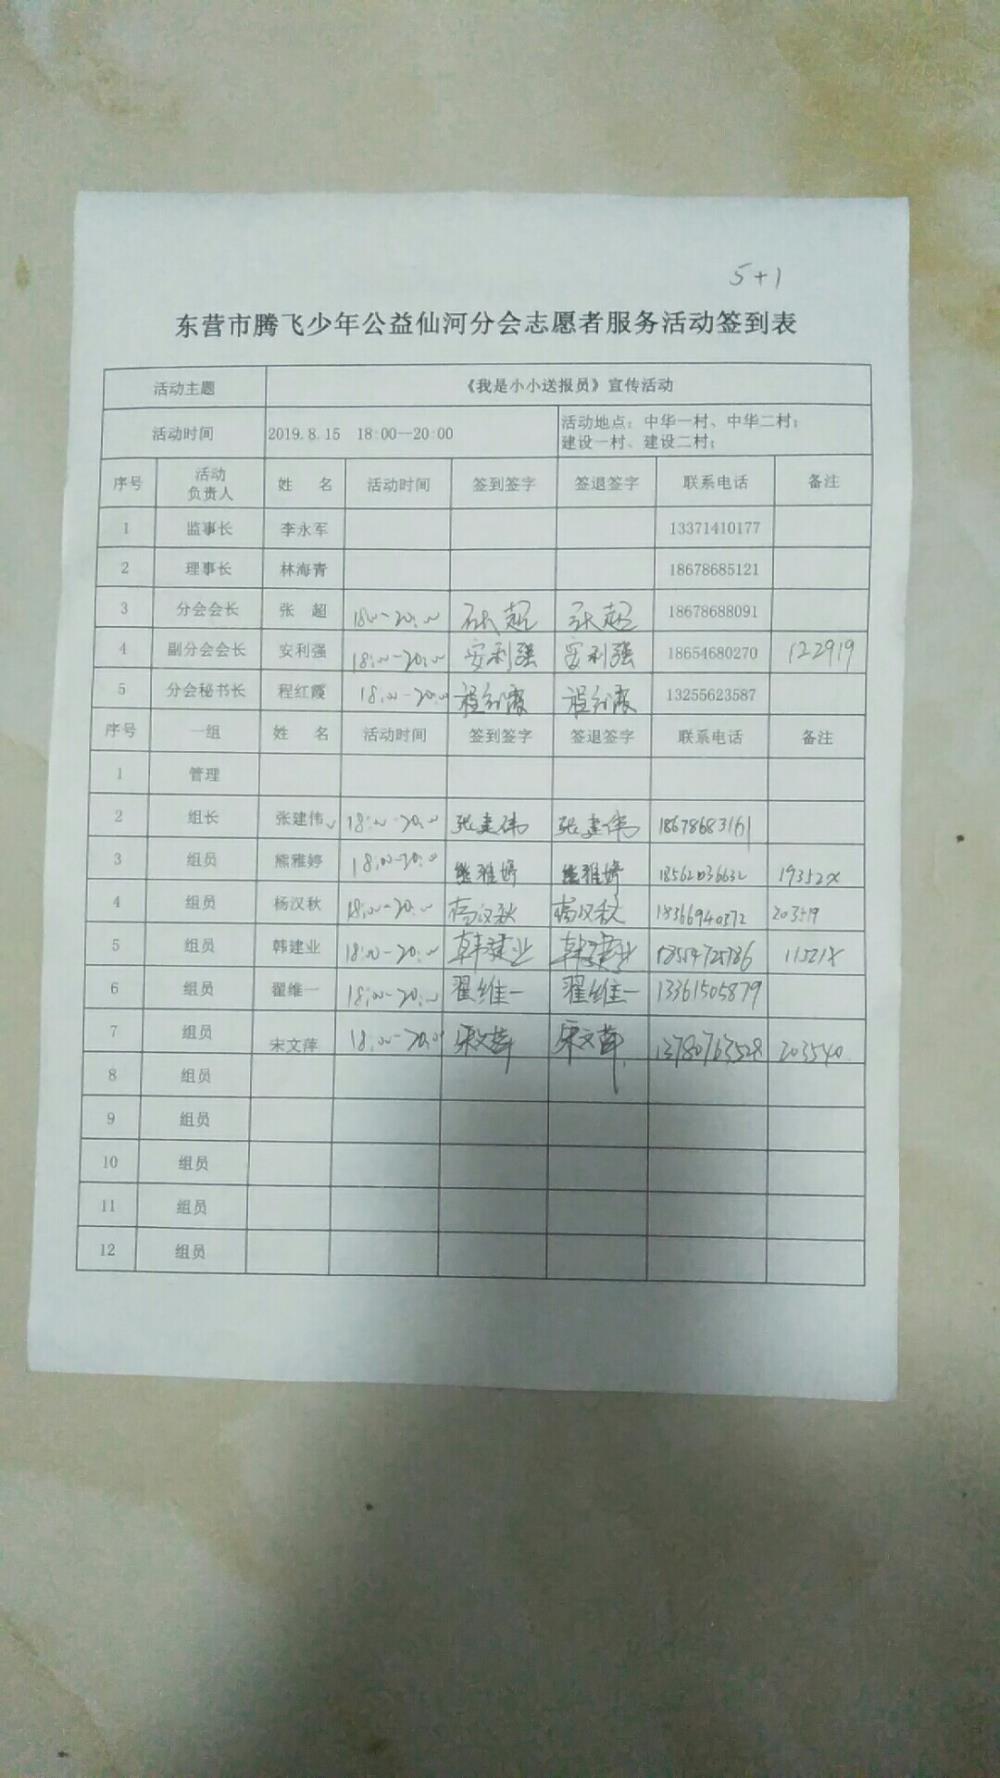 5+1
东营市腾飞少年公益仙河分会志愿者服务活动签到表
活动主题 《我是小小送报员》宣传活动
活动时间 2019.8.15 18:00—20:00 活动地点：中华一村、中华二村；
建设一村、建设二村；
序号 活动负责人 姓 名 活动时间 签到签字 签退签字 联系电话 备注
1 监事长 李永军 13371410177
2 理事长 林海青 18678685121
3 分会会长 张 超 18:00-20:00 张超 张超 18678688091
4 副分会会长 安利强 18:00-20:00 安利强 安利强 18654680270 122919
5 分会秘书长 程红霞 18:00-20:00 程红霞 程红霞 13255623587
序号 一组 姓 名 活动时间 签到签字 签退签字 联系电话 备注
1 管理
2 组长 张建伟✓ 18:00-20:00 张建伟 张建伟 18678683161
3 组员 熊雅婷 18:00-20:00 熊雅婷 熊雅婷 18562036632 19352X
4 组员 杨汉秋 18:00-20:00 杨汉秋 杨汉秋 18366940372 203519
5 组员 韩建业 18:00-20:00 韩建业 韩建业 11521X
6 组员 翟维一 18:00-20:00 翟维一 翟维一 13361505879
7 组员 宋文萍 18:00-20:00 宋文萍 宋文萍 13780763528 203540
8 组员
9 组员
10 组员
11 组员
12 组员